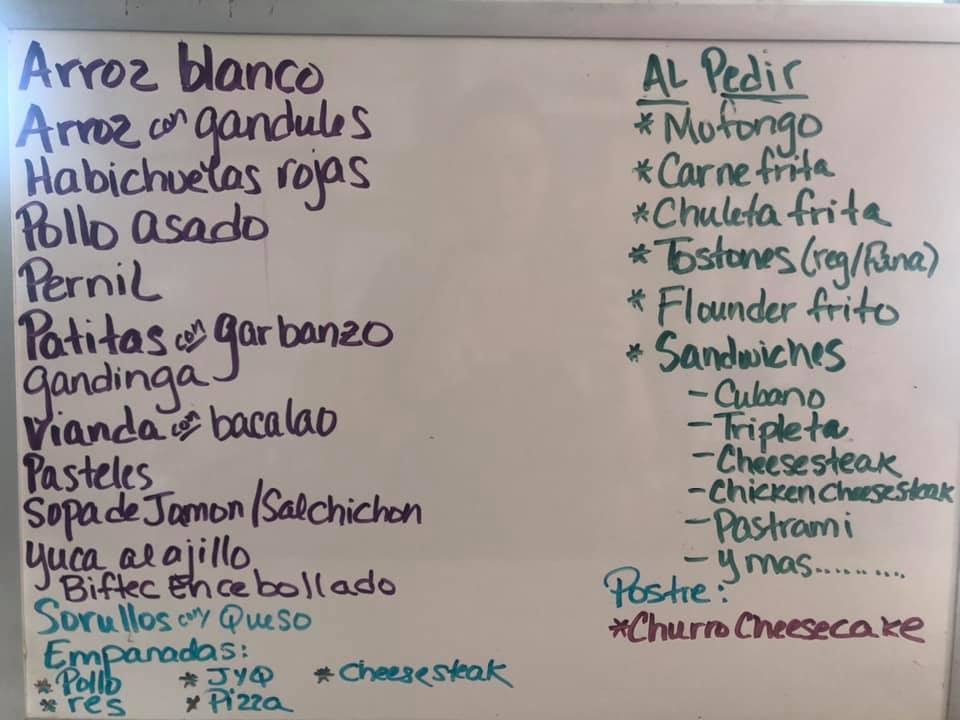 Arroz blanco
Arroz con gandules
Habichuelas rojas
Pollo asado
Pernil
Patitas con garbanzo
gandinga
Vianda con bacalao
Pasteles
Sopa de Jamon/Salchichon
Yuca al ajillo
Biftec Encebollado
Sorullos con Queso
Empanadas:
* Pollo * JYQ * Cheesesteak
* res * Pizza
AL Pedir
* Mofongo
* Carne frita
* Chuleta frita
* Tostones (reg/Pana)
* Flounder frito
* Sandwiches
- Cubano
- Tripleta
- Cheesesteak
- Chicken cheesesteak
- Pastrami
- Y mas.........
Postre:
* Churro Cheesecake